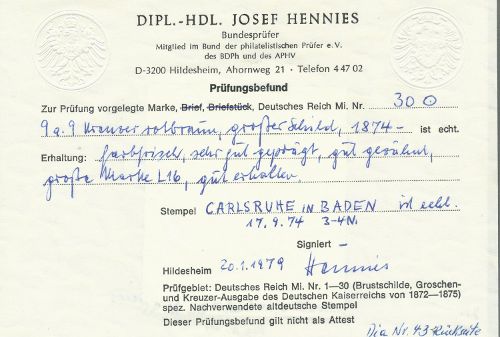 DIPL.-HDL. JOSEF HENNIES
Bundesprüfer
Mitglied im Bund der philatelistischen Prüfer e.V.
des BDPh und des APHV
D-3200 Hildesheim, Ahornweg 21 · Telefon 4 47 02
Prüfungsbefund
Zur Prüfung vorgelegte Marke, Brief, Briefstück, Deutsches Reich Mi. Nr. 30
9 a. 9 Kreuzer rotbraun, großer Schild, 1874 – ist echt.
Erhaltung: farbfrisch, sehr gut geprägt, gut gezähnt,
große Marke L16, gut erhalten.
Stempel CARLSRUHE IN BADEN ist echt.
17.9.74 3-4N.
Signiert –
Hildesheim 20.1.1979 Hennies
Prüfgebiet: Deutsches Reich Mi. Nr. 1—30 (Brustschilde, Groschen-
und Kreuzer-Ausgabe des Deutschen Kaiserreichs von 1872—1875)
spez. Nachverwendete altdeutsche Stempel
Dieser Prüfungsbefund gilt nicht als Attest
Dia Nr. 43-Rückseite